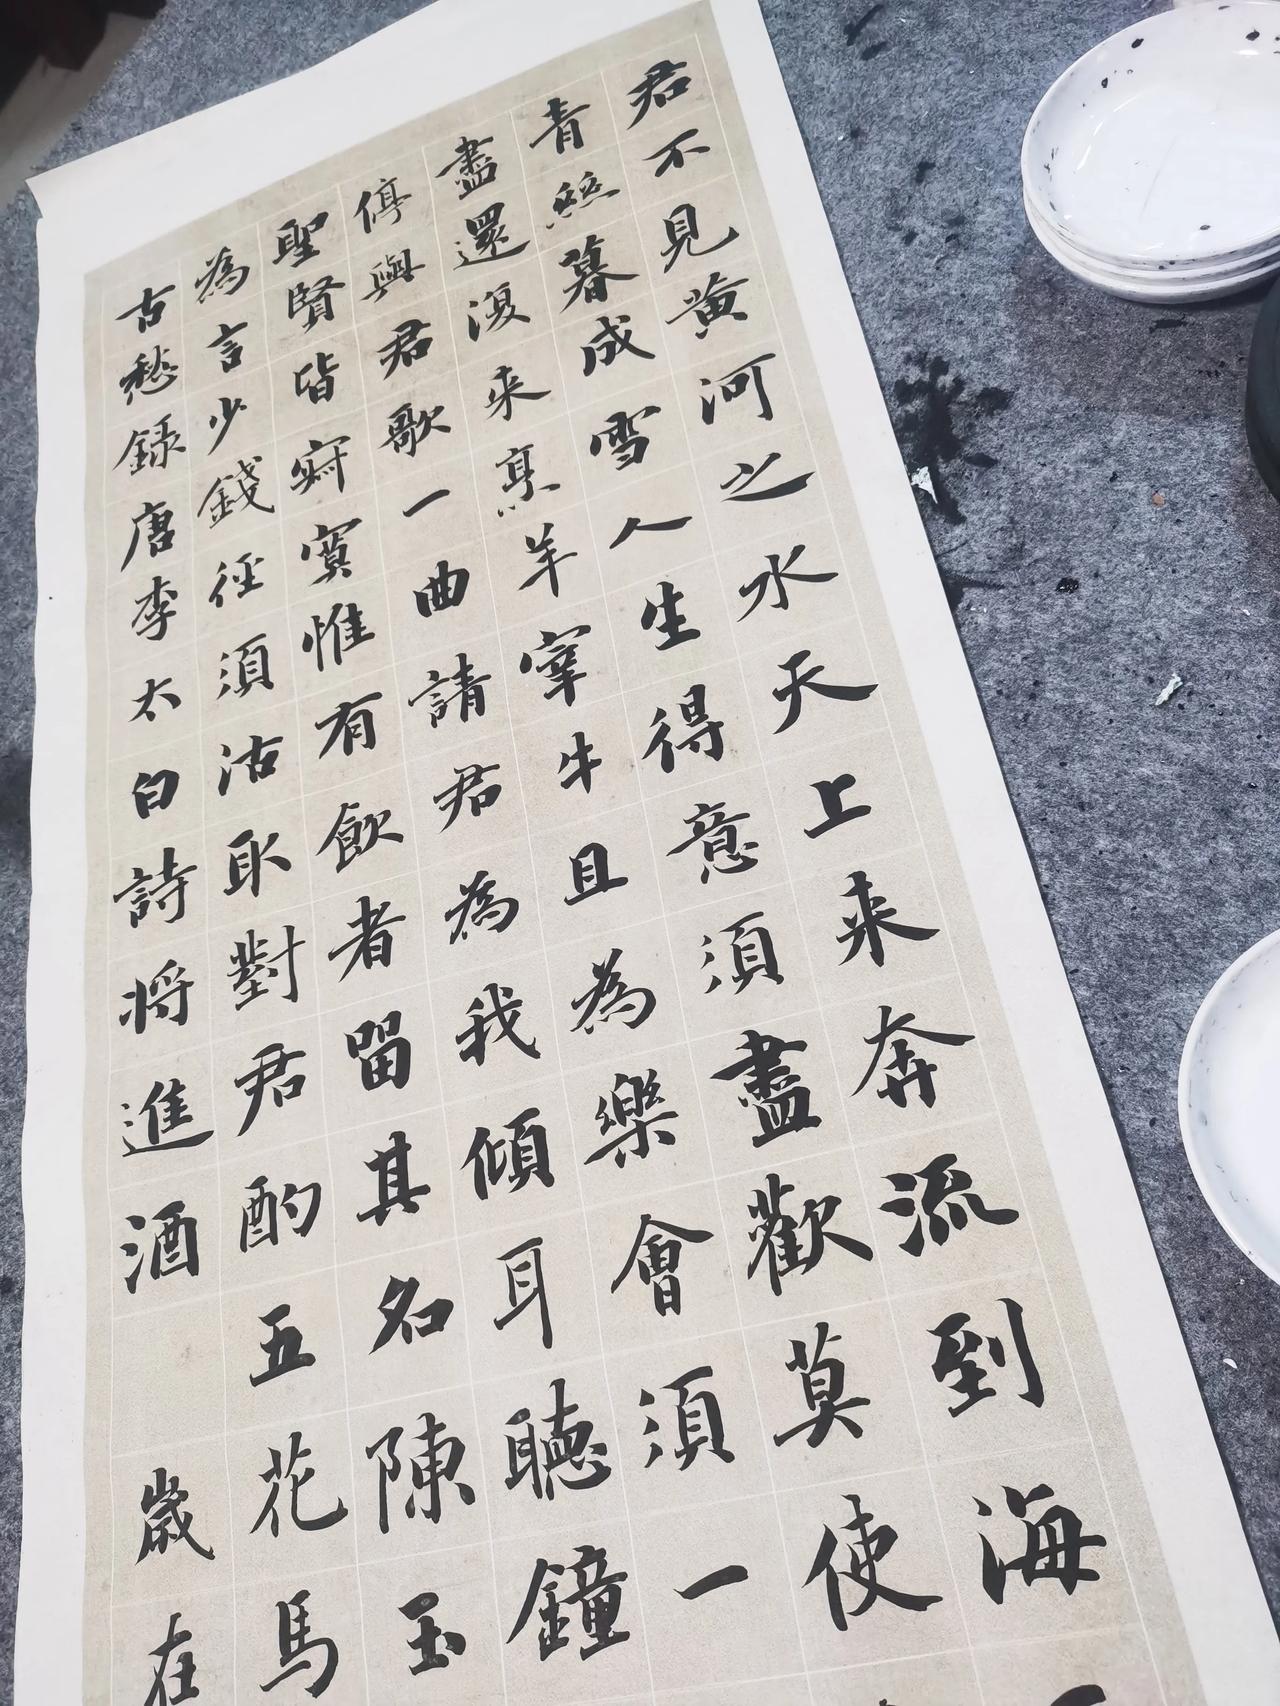 君不見黃河之水天上来奔流到海
青絲暮成雪人生得意須盡歡莫使
盡還復来烹羊宰牛且為樂會須一
停與君歌一曲請君為我傾耳聽鐘
聖賢皆寂寞惟有飲者留其名陳玉
為言少錢徑須沽取對君酌五花馬
古愁錄唐李太白詩將進酒 歲在